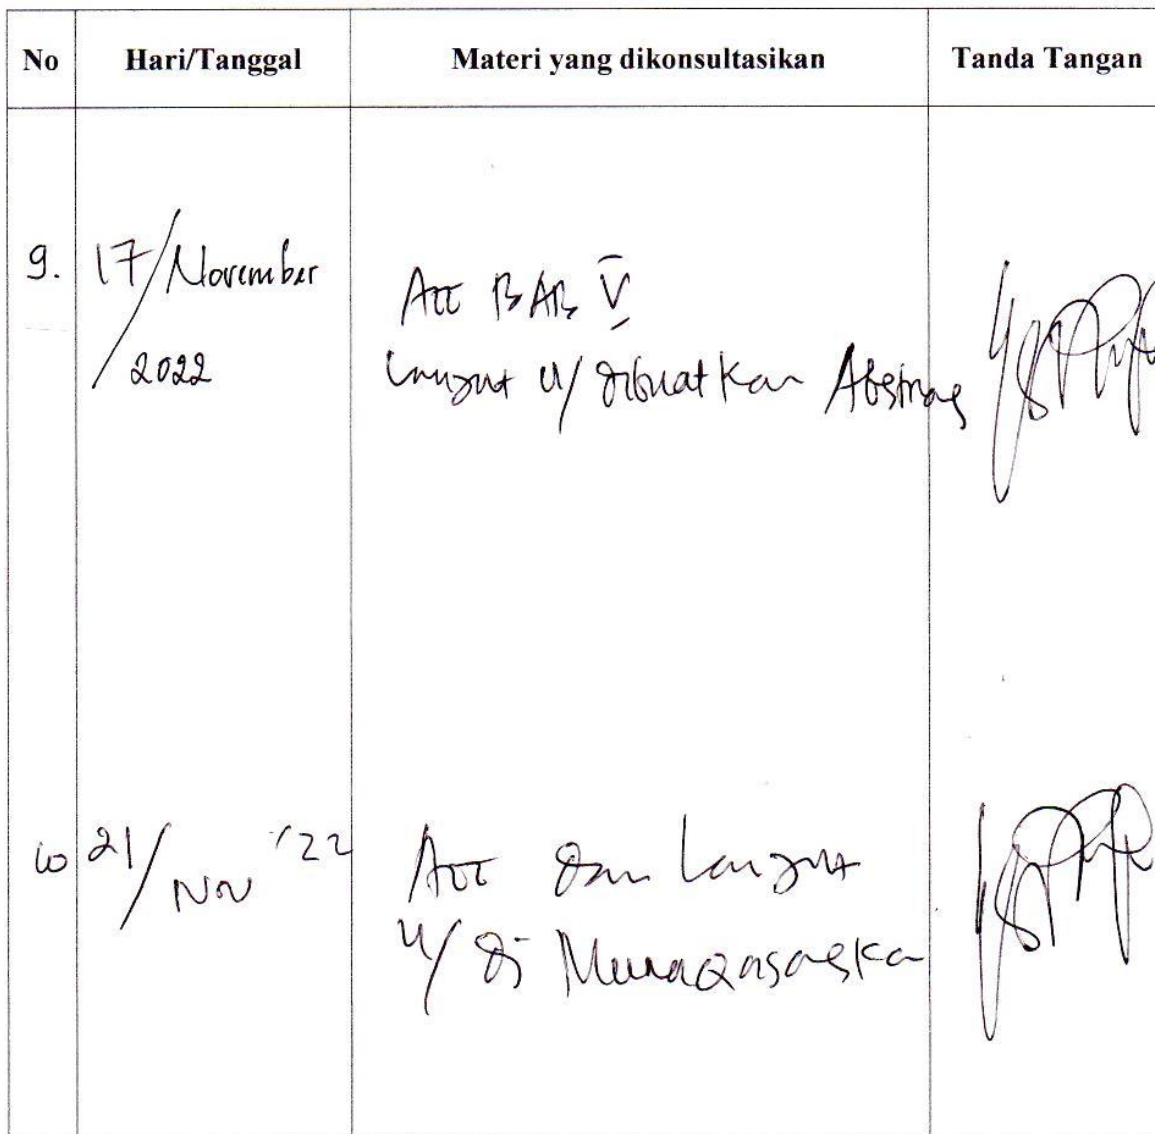 No Hari/Tanggal Materi yang dikonsultasikan Tanda Tangan
9. 17/November
/2022
Acc BAB V
Lanjut u/ dibuatkan Abstrag
10 21/Nov '22
Acc dan Lanjut
u/ di Munaqasahkan